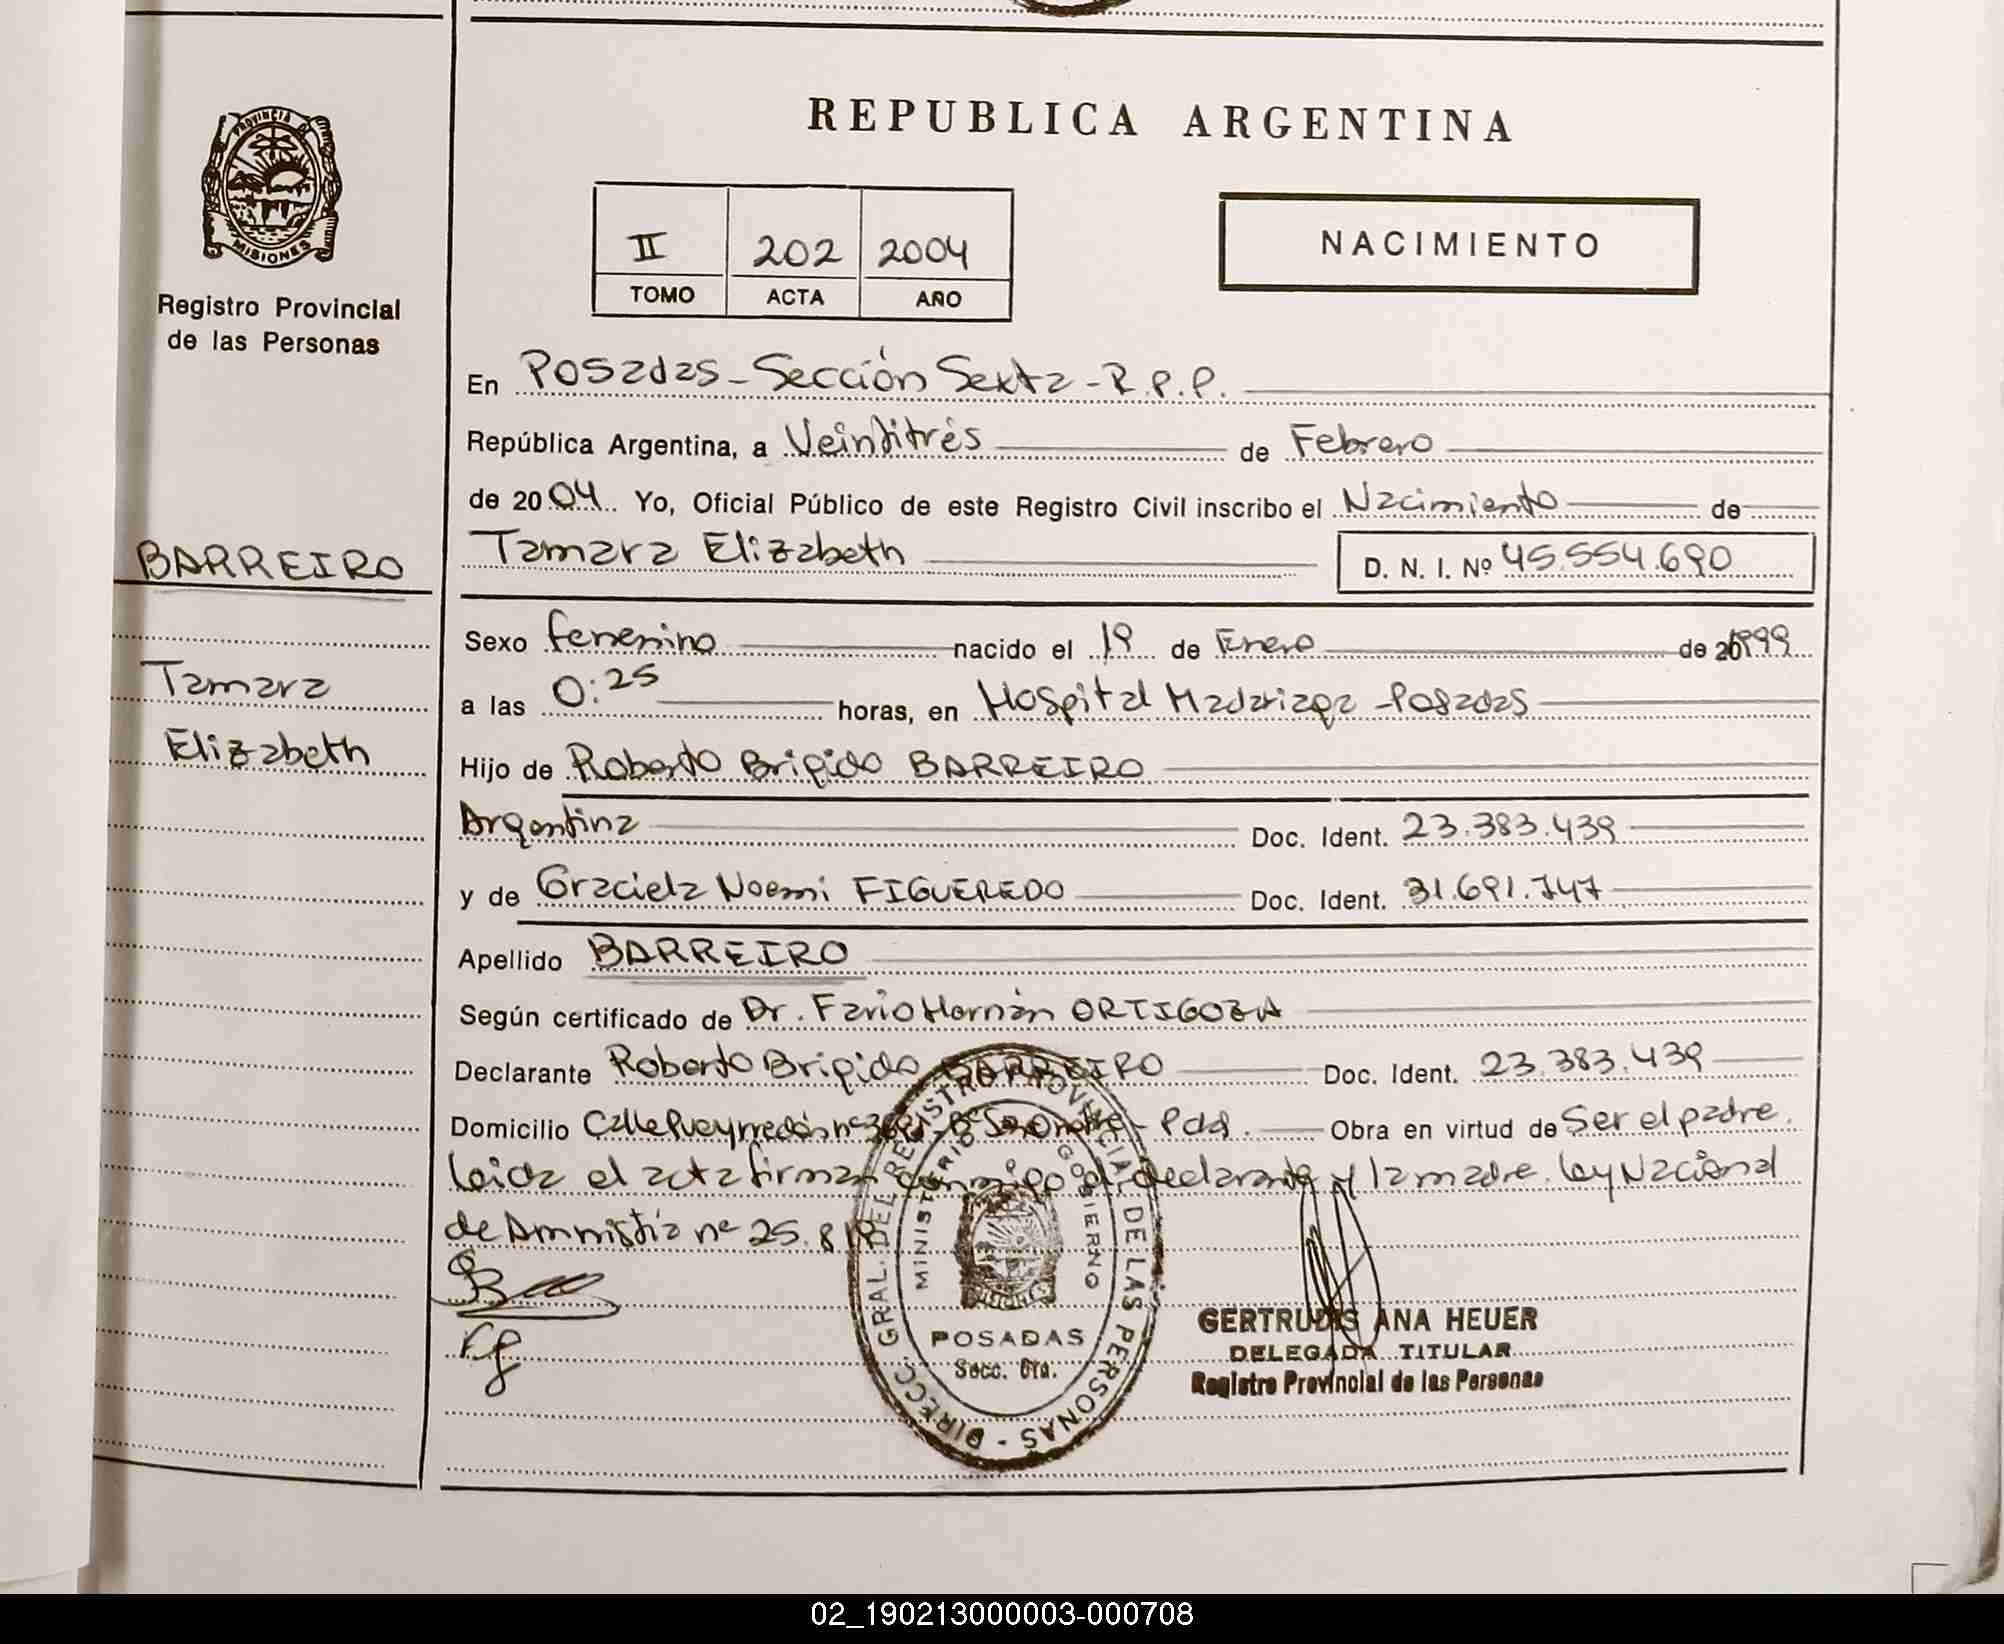 REPUBLICA ARGENTINA
PROVINCIA DE
MISIONES
Registro Provincial
de las Personas
II 202 2004
TOMO ACTA AÑO
NACIMIENTO
En Posadas - Sección Sexta - R.P.P.
República Argentina, a Veintitrés de Febrero
de 2004 Yo, Oficial Público de este Registro Civil inscribo el Nacimiento de
BARREIRO
Tamara Elizabeth D. N. I. Nº 45.554.690
Sexo femenino nacido el 19 de Enero de 1999
Tamara
a las 0:25 horas, en Hospital Madariaga - Posadas
Elizabeth
Hijo de Roberto Brigido BARREIRO
Argentina Doc. Ident. 23.383.439
y de Graciela Noemi FIGUEREDO Doc. Ident. 31.691.747
Apellido BARREIRO
Según certificado de Dr. Hernán ORTIGOZA
Declarante Roberto Brigido BARREIRO Doc. Ident. 23.383.439
Domicilio Calle Pueyrredón nº - Pdas. Obra en virtud de Ser el padre.
Leida el acta firman conmigo el declarante y la madre. Ley Nacional
de Amnistía nº 25.819
DIRECC. GRAL. DEL REGISTRO PROVINCIAL DE LAS PERSONAS -
MINISTERIO DE GOBIERNO
POSADAS
Secc. 6ta.
GERTRUDIS ANA HEUER
DELEGADA TITULAR
Registro Provincial de las Personas
02_190213000003-000708